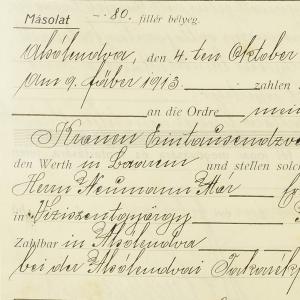 Másolat -.80. fillér bélyeg.
Alsólendva, den 4. ten Oktober
Am 9. feber 1913. zahlen
an die Ordre mein
Kronen Eintausendzwe
den Werth in Baarem und stellen solc
Herrn Neumann Mór
in Vizíszentgyörgy
Zahlbar in Alsólendva
bei der Alsólendvai Takarékp